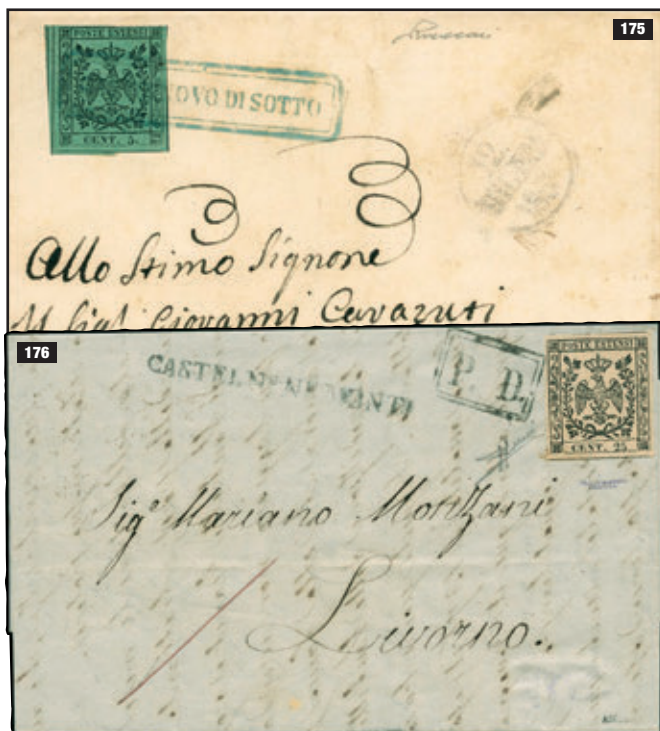 175
POSTE ESTENSI
CENT. 5.
OVO DI SOTTO
Allo Stimo Signone
Sigl Giovanni Cavazuti
176
P. D.
POSTE ESTENSI
CENT. 25
Sigr Mariano Monzani
Livorno.